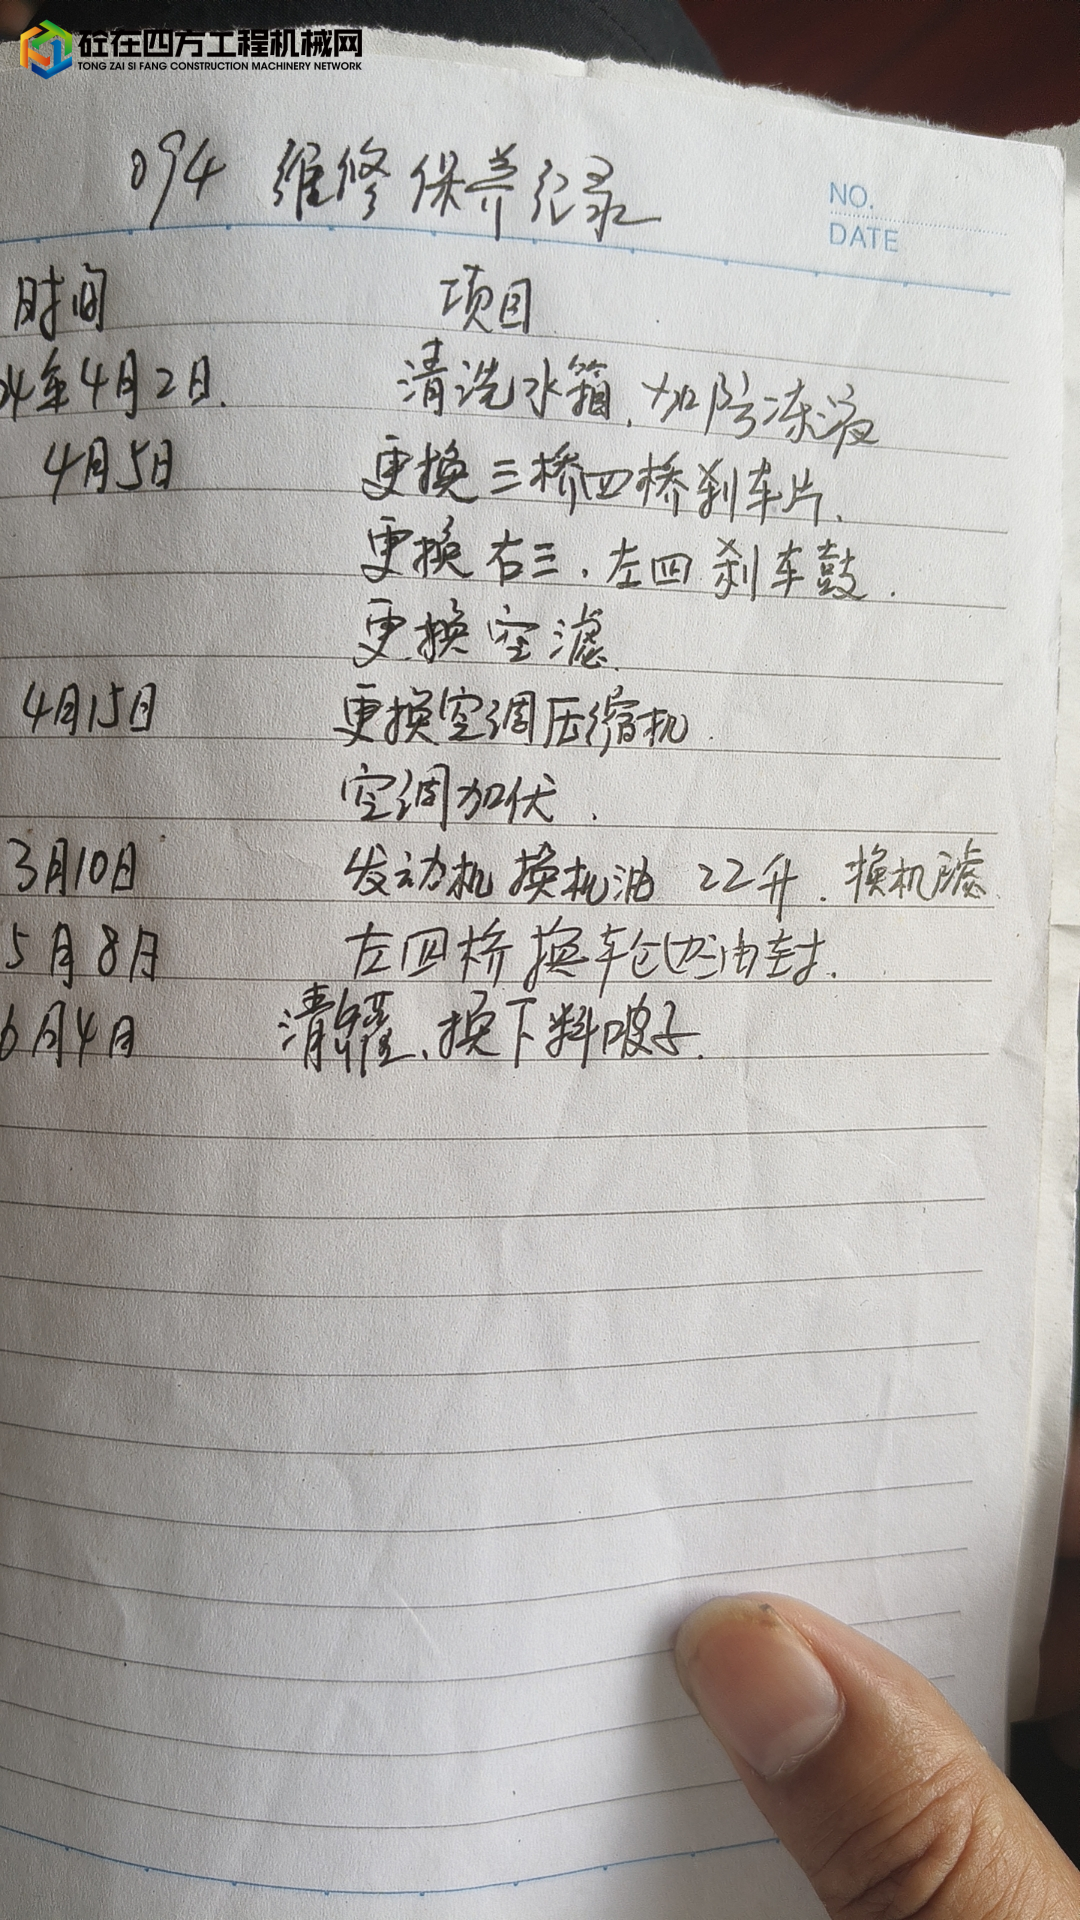 砼在四方工程机械网
TONG ZAI SI FANG CONSTRUCTION MACHINERY NETWORK
094 维修保养记录
NO.
DATE
时间 项目
24年4月2日. 清洗水箱, 加防冻液
4月5日 更换三桥四桥刹车片.
更换右三, 左四刹车鼓.
更换空滤
4月15日 更换空调压缩机.
空调加伏.
3月10日 发动机换机油 22升. 换机滤
5月8日 左四桥换车轮边油封.
6月4日 清罐、换下料